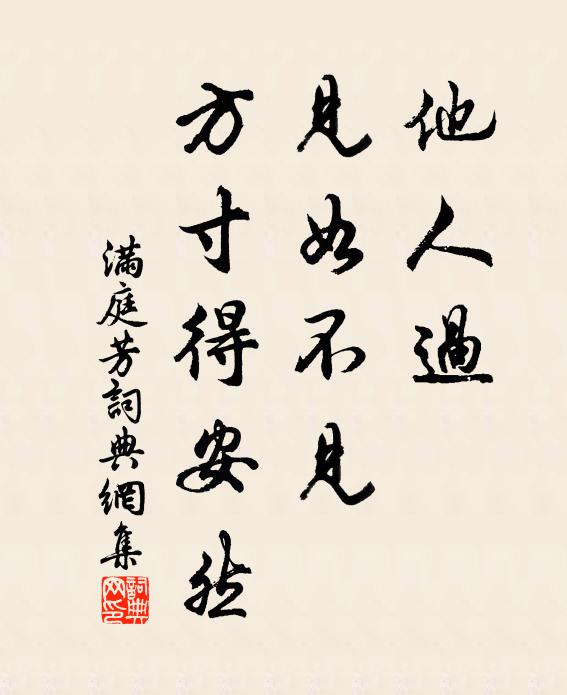 他人過
見如不見
方寸得安然
滿庭芳詞典網集
詞典網印